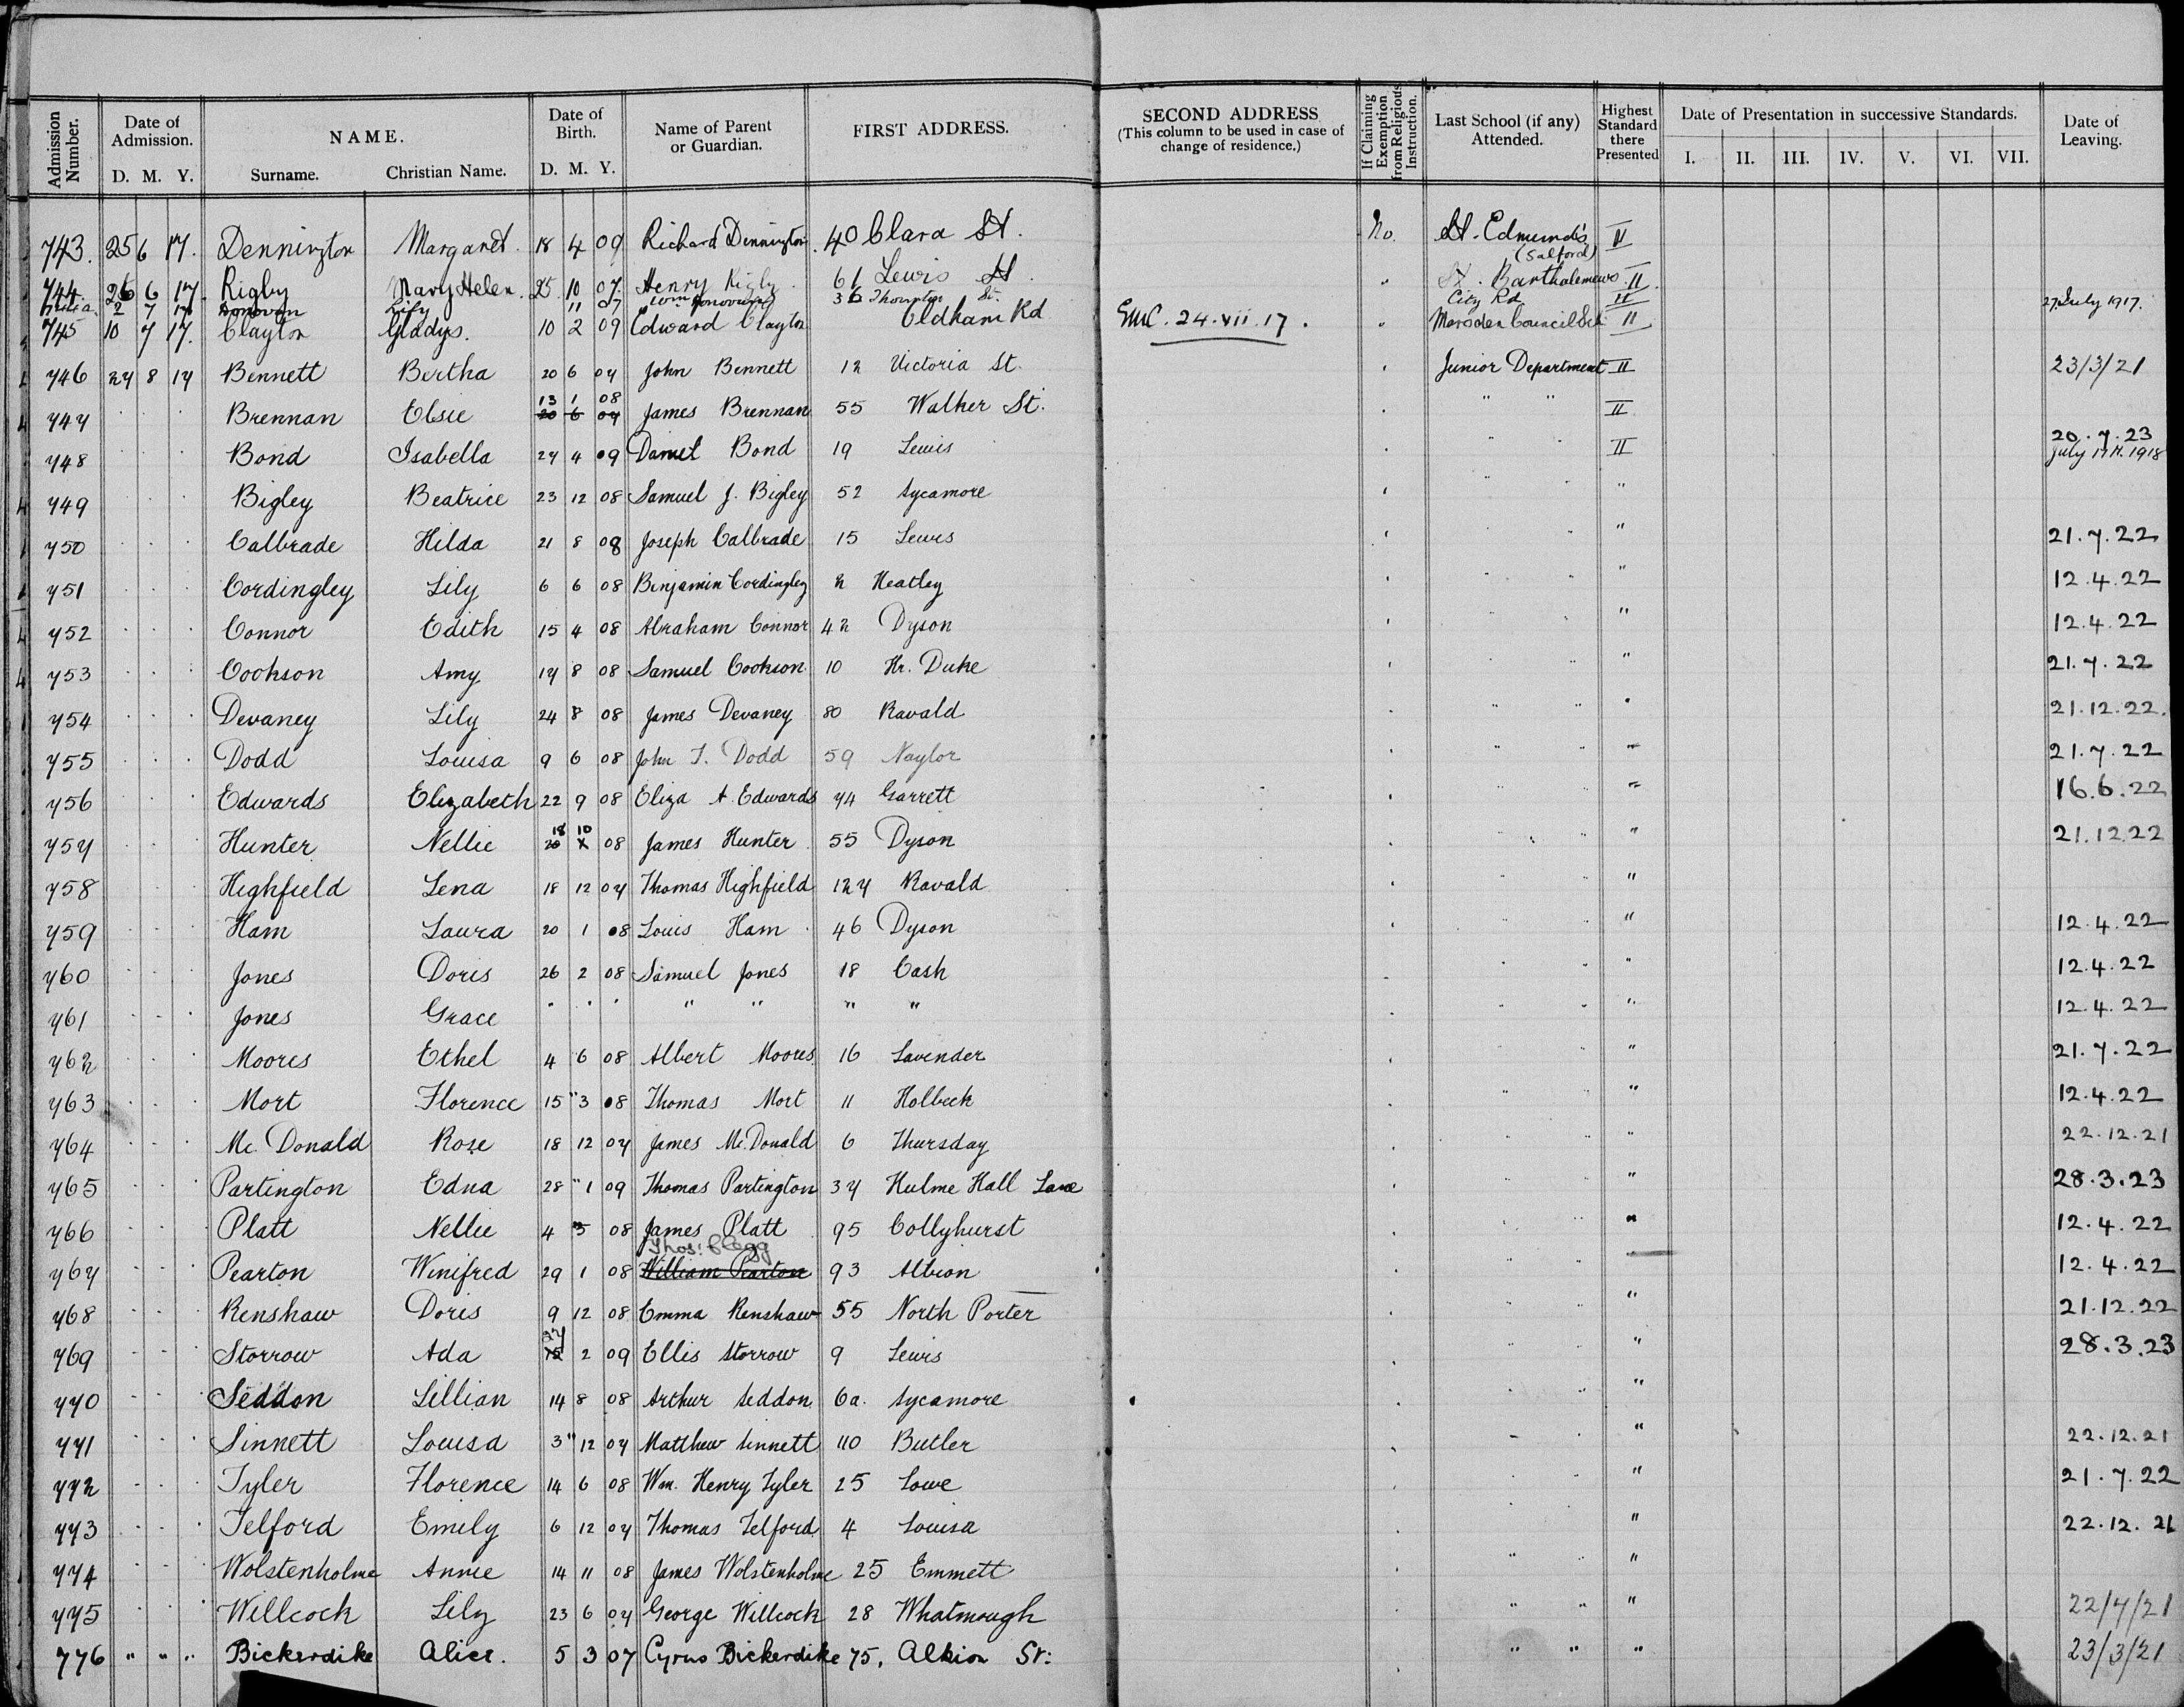 Admission Number. Date of Admission. D. M. Y. NAME. Surname. Christian Name. Date of Birth. D. M. Y. Name of Parent or Guardian. FIRST ADDRESS. SECOND ADDRESS (This column to be used in case of change of residence.) If Claiming Exemption from Religious Instruction. Last School (if any) Attended. Highest Standard there Presented Date of Presentation in successive Standards. I. II. III. IV. V. VI. VII. Date of Leaving.
743. 25 6 17. Dennington Margaret. 18 4 09 Richard Dennington. 40 Clara St. No. St. Edmund's (Salford) II
744. 26 6 17. Rigby Mary Helen. 25. 10 07. Henry Rigby 61 Lewis St. " St. Barthalemews II
2 7 17 Donovan Lily 11 07 Donovan 36 Thompson St. City Rd II 27. July 1917.
745 10 7 17. Clayton Gladys. 10 2 09 Edward Clayton Oldham Rd 24.vii.17. " Marsden Council Sch II
746 27 8 17 Bennett Bertha 20 6 07 John Bennett 12 Victoria St. " Junior Department II 23/3/21
747 " " " Brennan Elsie 13 1 08 20 6 07 James Brennan 55 Walker St. " " " II
748 " " " Bond Isabella 27 4 09 Daniel Bond 19 Lewis " " " II 20.7.23 July 17th. 1918
749 " " " Bigley Beatrice 23 12 08 Samuel J. Bigley 52 Sycamore " " " "
750 " " " Calbrade Hilda 21 8 08 Joseph Calbrade 15 Lewis " " " " 21.7.22
751 " " " Cordingley Lily 6 6 08 Benjamin Cordingley 2 Heatley " " " " 12.4.22
752 " " " Connor Edith 15 4 08 Abraham Connor 42 Dyson " " " " 12.4.22
753 " " " Cookson Amy 17 8 08 Samuel Cookson 10 Hr. Duke " " " " 21.7.22
754 " " " Devaney Lily 24 8 08 James Devaney 80 Ravald " " " " 21.12.22.
755 " " " Dodd Louisa 9 6 08 John T. Dodd 59 Naylor " " " " 21.7.22
756 " " " Edwards Elizabeth 22 9 08 Eliza A Edwards 74 Garrett " " " " 16.6.22
757 " " " Hunter Nellie 18 10 20 X 08 James Hunter 55 Dyson " " " " 21.12.22
758 " " " Highfield Lena 18 12 07 Thomas Highfield 127 Ravald " " " "
759 " " " Ham Laura 20 1 08 Louis Ham 46 Dyson " " " " 12.4.22
760 " " " Jones Doris 26 2 08 Samuel Jones 18 Cash " " " " 12.4.22
761 " " " Jones Grace " " " " " " " " " " " 12.4.22
762 " " " Moores Ethel 4 6 08 Albert Moores 16 Lavender " " " " 21.7.22
763 " " " Mort Florence 15 " 3 08 Thomas Mort 11 Holbeck " " " " 12.4.22
764 " " " Mc. Donald Rose 18 12 07 James Mc. Donald 6 Thursday " " " " 22.12.21
765 " " " Partington Edna 28 " 1 09 Thomas Partington 37 Hulme Hall Lane " " " " 28.3.23
766 " " " Platt Nellie 4 5 08 James Platt 95 Collyhurst " " " " 12.4.22
767 " " " Pearton Winifred 29 1 08 Thos. Clegg William Pearton 93 Albion " " " 12.4.22
768 " " " Renshaw Doris 9 12 08 Emma Renshaw 55 North Porter " " " " 21.12.22
769 " " " Storrow Ada 27 2 09 Ellis Storrow 9 Lewis " " " " 28.3.23
770 " " " Seddon Lillian 14 8 08 Arthur Seddon 6a. Sycamore " " " "
771 " " " Sinnett Louisa 3 " 12 07 Matthew Sinnett 110 Butler " " " " 22.12.21
772 " " " Tyler Florence 14 6 08 Wm. Henry Tyler 25 Lowe " " " " 21.7.22
773 " " " Telford Emily 6 12 07 Thomas Telford 4 Louisa " " " " 22.12.21
774 " " " Wolstenholme Annie 14 11 08 James Wolstenholme 25 Emmett " " " "
775 " " " Willcock Lily 23 6 07 George Willcock 28 Whatmough " " " " 22/7/21
776 " " " Bickerdike Alice. 5 3 07 Cyrus Bickerdike 75, Albion St: " " " 23/3/21